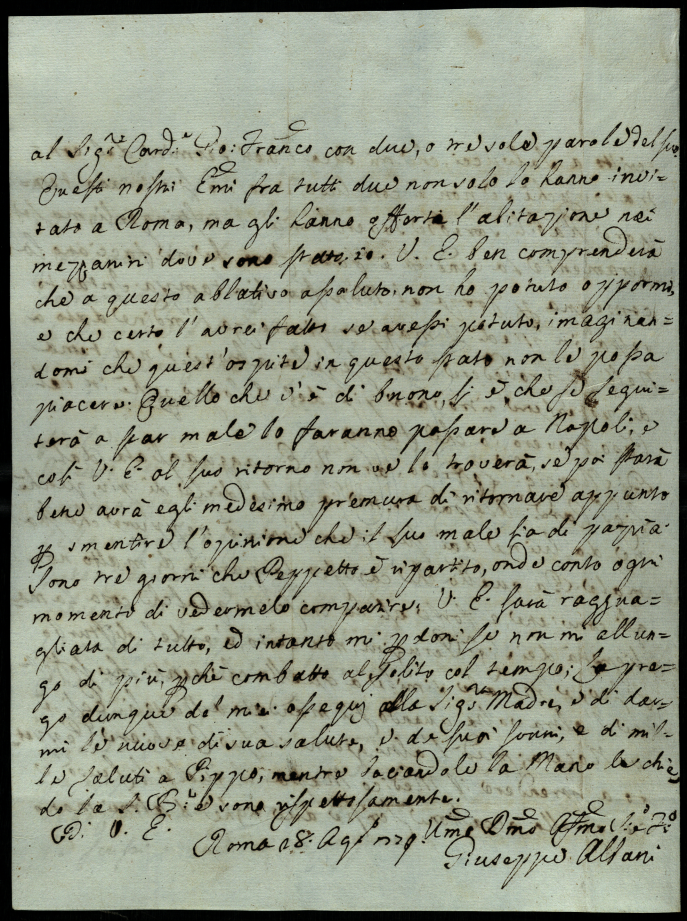 al Sig.re Card.le Gio: Fran.co con due, o tre sole parole del suo
Questi nostri E.mi fra tutti due non solo lo hanno invi=
tato a Roma, ma gli hanno offerta l'abitazione nei
mezzanini dove sono stato io. V. E. ben comprenderà
che a questo ablativo assoluto, non ho potuto oppormi,
e che certo l'avrei fatto se avessi potuto, imaginan=
domi che quest'ospite in questo stato non le possa
piacere. Quello che v'è di buono, si è, che se segui=
terà a star male lo faranno passare a Napoli, e
così V. E. al suo ritorno non ve lo troverà, se poi starà
bene avrà egli medesimo premura di ritornare appunto
p smentire l'opinione che il suo male sia di pazzia.
Sono tre giorni che Peppetto è ripartito, onde conto ogni
momento di vedermelo comparire. V. E. sarà raggua=
gliata di tutto, ed intanto mi pdoni se non mi allun=
go di più, pchè combatto al solito col tempo; La pre=
go dunque de' miei ossequj alla Sig.ra Madre, e di dar=
mi le nuove di sua salute, e de suoi sonni, e di mil=
le saluti a Pippo, mentre baciandole la Mano le chie
do la S. B.ne e sono rispettosamente.
Di V. E.
Roma 28. Ag.o 1779. U.mo D.mo Aff.mo
Giuseppe Albani